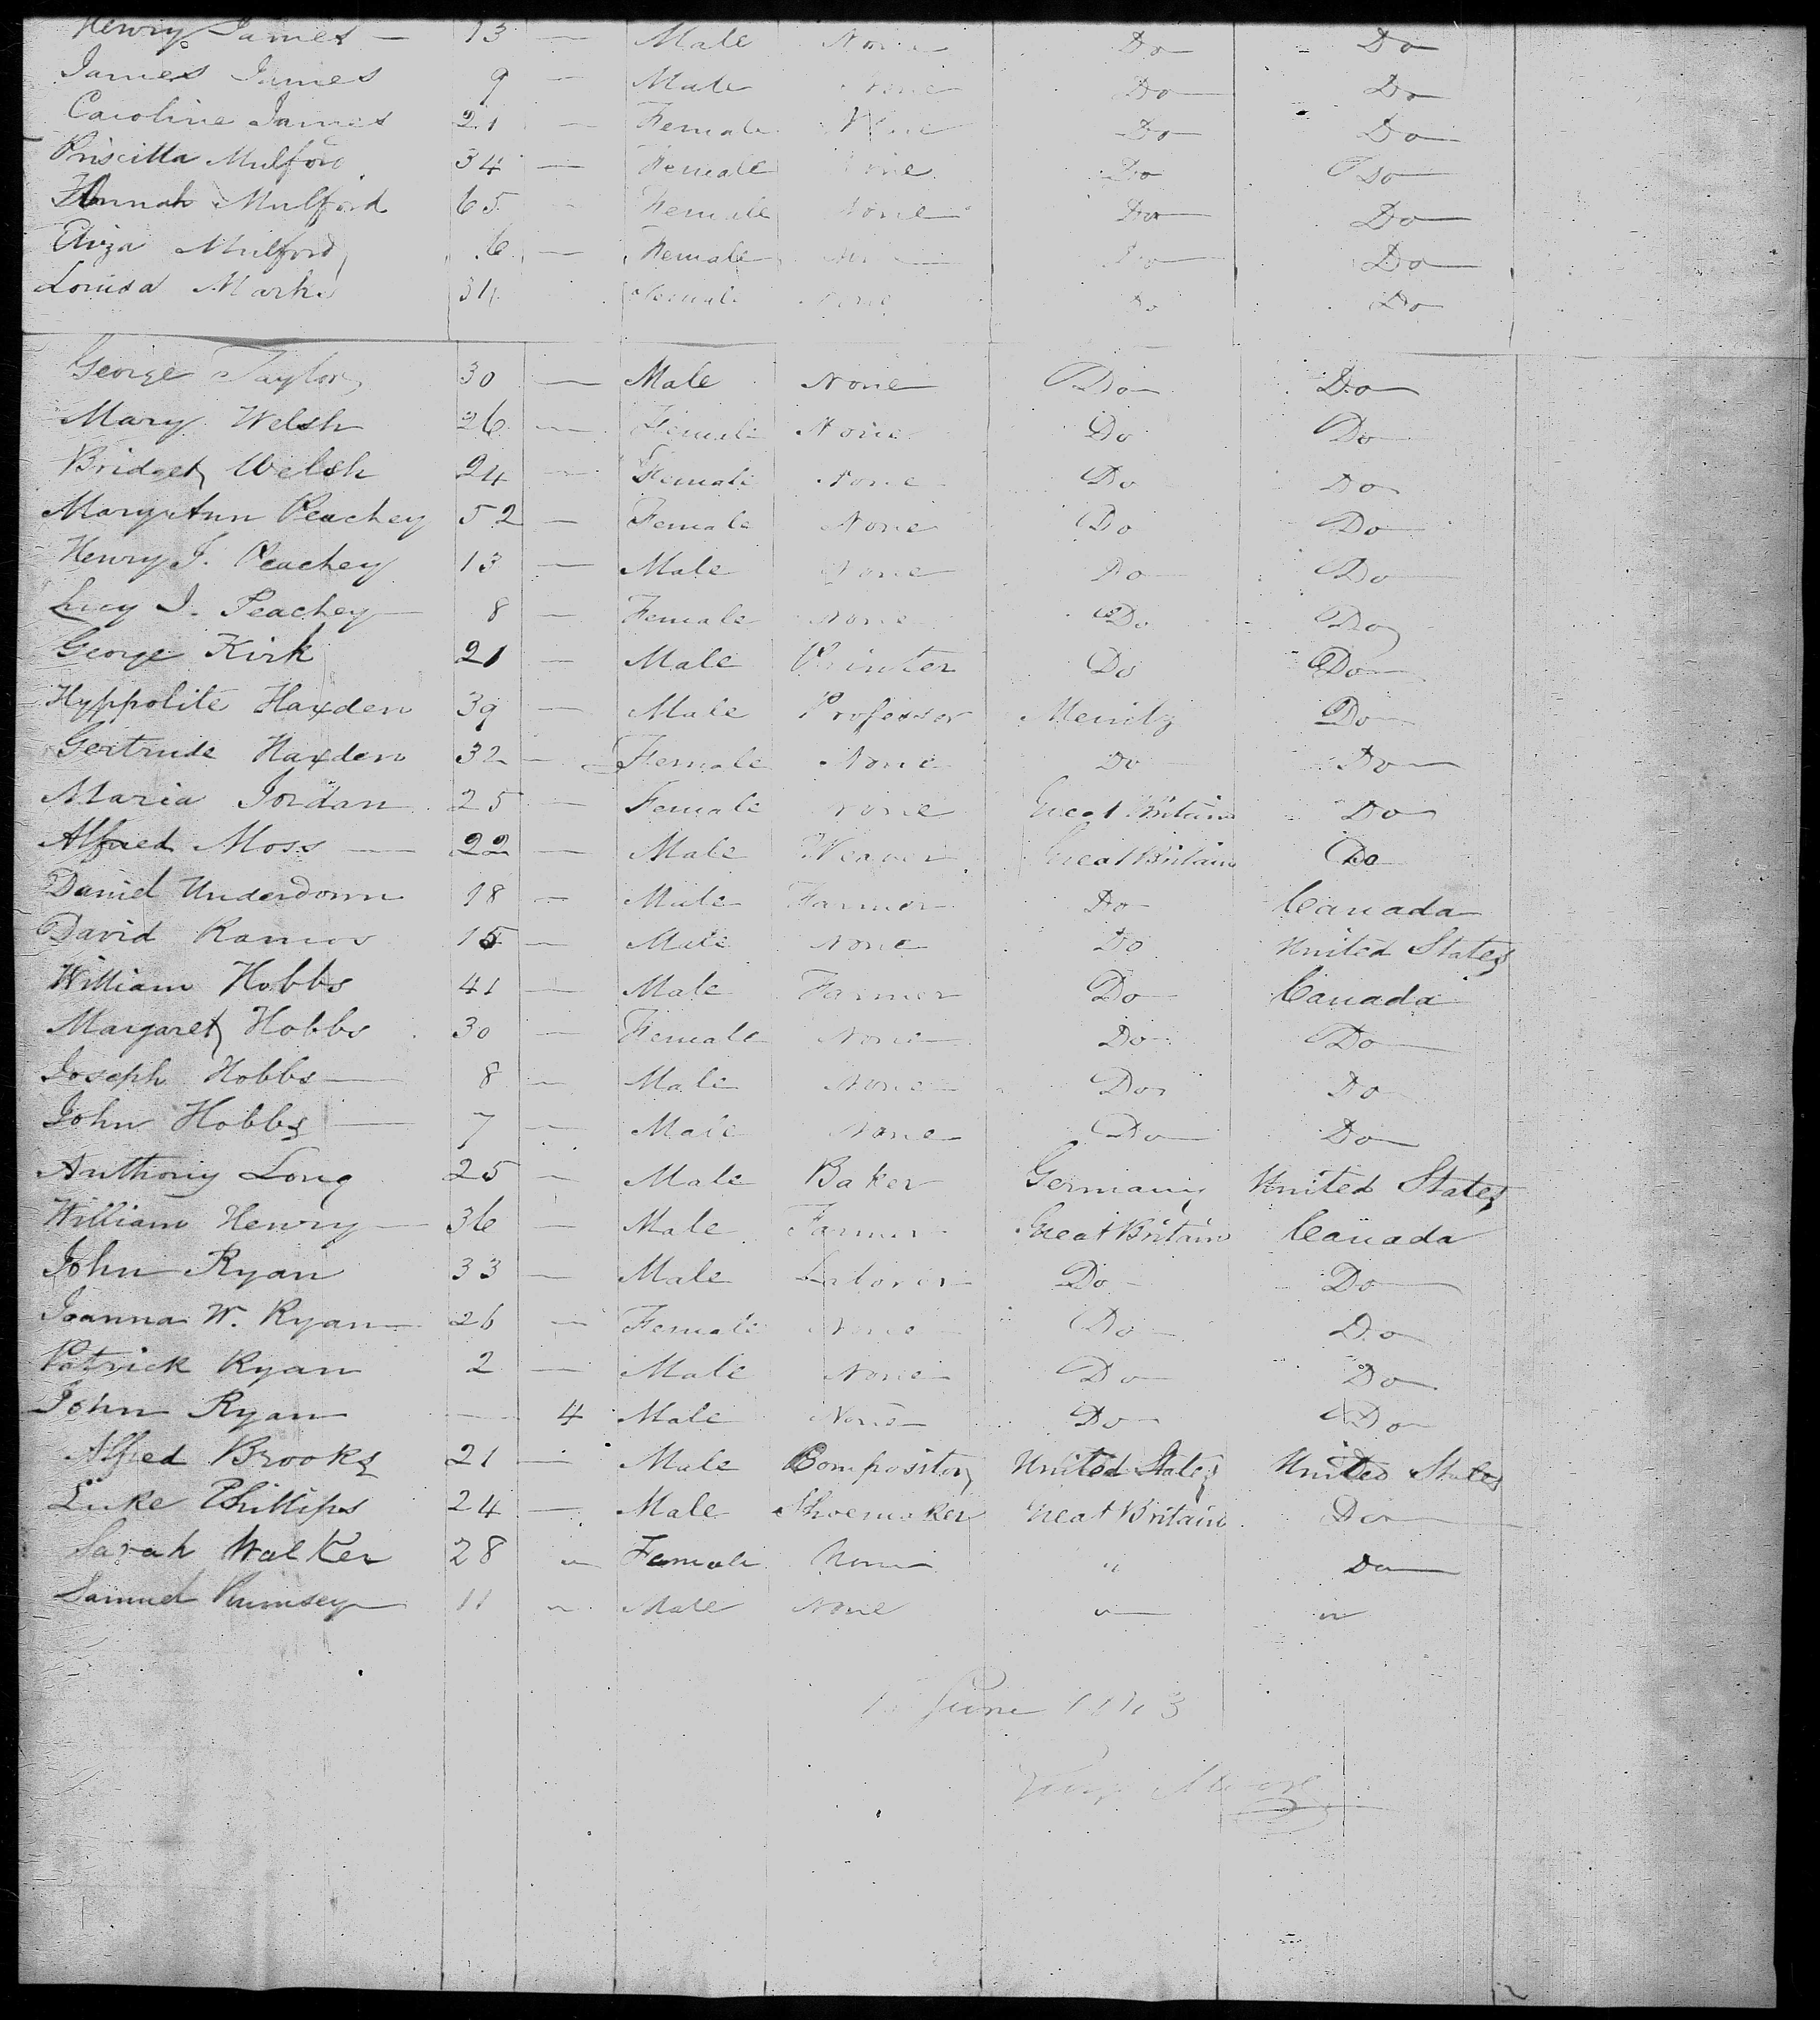 Henry James — 13 — Male None Do Do
James James 9 — Male None Do Do
Caroline James 21 — Female None Do Do
Priscilla Mulford 34 — Female None Do Do
Hannah Mulford 65 - Female None Do Do
Eliza Mulford 6 — Female Do Do
Louisa Marks 34 Female None Do Do
George Taylor 30 — Male None Do Do
Mary Welsh 26 — Female None Do Do
Bridget Welsh 24 — Female None Do Do
Mary Ann Peachey 52 — Female None Do Do
Henry J. Peachey 13 — Male None Do Do
Lucy J. Peachey 8 — Female None Do Do
George Kirk 21 — Male Printer Do Do
Hyppolite Haxden 39 — Male Professor Do
Gertrude Haxden 32 — Female None Do Do
Maria Jordan 25 — Female None Great Britain Do
Alfred Moss — 22 — Male Weaver Great Britain Do
Daniel Underdown 18 — Male Farmer Do Canada
David 15 — Male None Do United States
William Hobbs 41 — Male Farmer Do Canada
Margaret Hobbs 30 — Female None Do Do
Joseph Hobbs — 8 — Male None Do Do
John Hobbs — 7 — Male None Do Do
Anthony Long 25 — Male Baker Germany United States
William Henry — 36 — Male Farmer Great Britain Canada
John Ryan 33 — Male Laborer Do Do
Joanna W. Ryan 26 — Female None Do Do
Patrick Ryan 2 — Male None Do Do
John Ryan — 4 Male None Do Do
Alfred Brooks 21 — Male Compositor United States United States
Luke Phillips 24 — Male Shoemaker Great Britain Do
Sarah Walker 28 " Female None " Do
Samuel Rumsey 11 " Male None " "
June